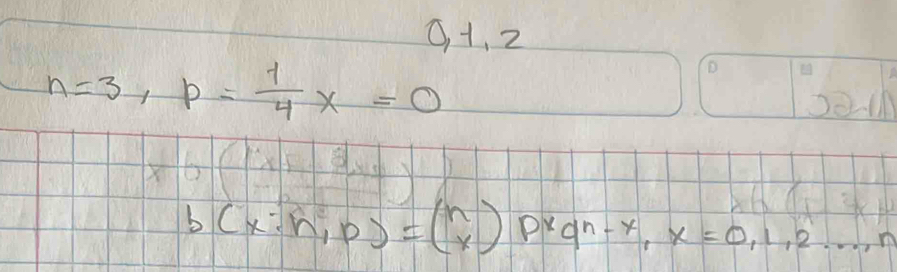 0,1,2
n=3, p = 1/4 x = 0
D
b(x;n,p) = (n x) p^x q^n-x, x = 0,1,2...,n